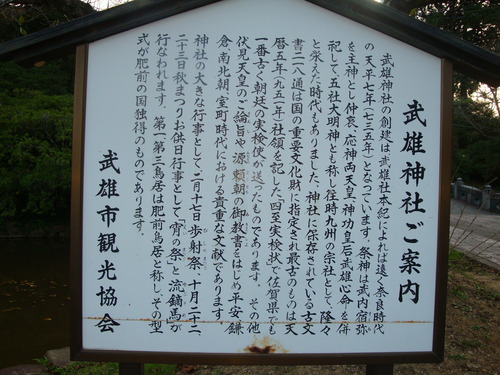 武雄神社ご案内
武雄神社の創建は武雄社本紀によれば遠く奈良時代
の天平七年(七三五年)となつています。祭神は武内宿弥
を主神とし仲哀、応神両天皇、神功皇后武雄心命を併
祀して、五社大明神とも称し往時九州の宗社として、隆々
と栄えた時代もありました、神社に保存されている古文
書二八通は国の重要文化財に指定され最古のものは天
暦五年(九五一年)社領を記した四至実検状で佐賀県でも
一番古く朝廷の実検使が送ったものであります。その他
伏見天皇のご綸旨や源頼朝の御教書をはじめ平安、鎌
倉、南北朝、室町時代における貴重な文献であります。
神社の大きな行事として、二月十一日歩射祭、十月二十二、
二十三日秋まつりお供日行事として「宵の祭」と流鏑馬が
行なわれます。第一第三鳥居は肥前鳥居と称し、その型
式が肥前の国独得のものであります。
武雄市観光協会